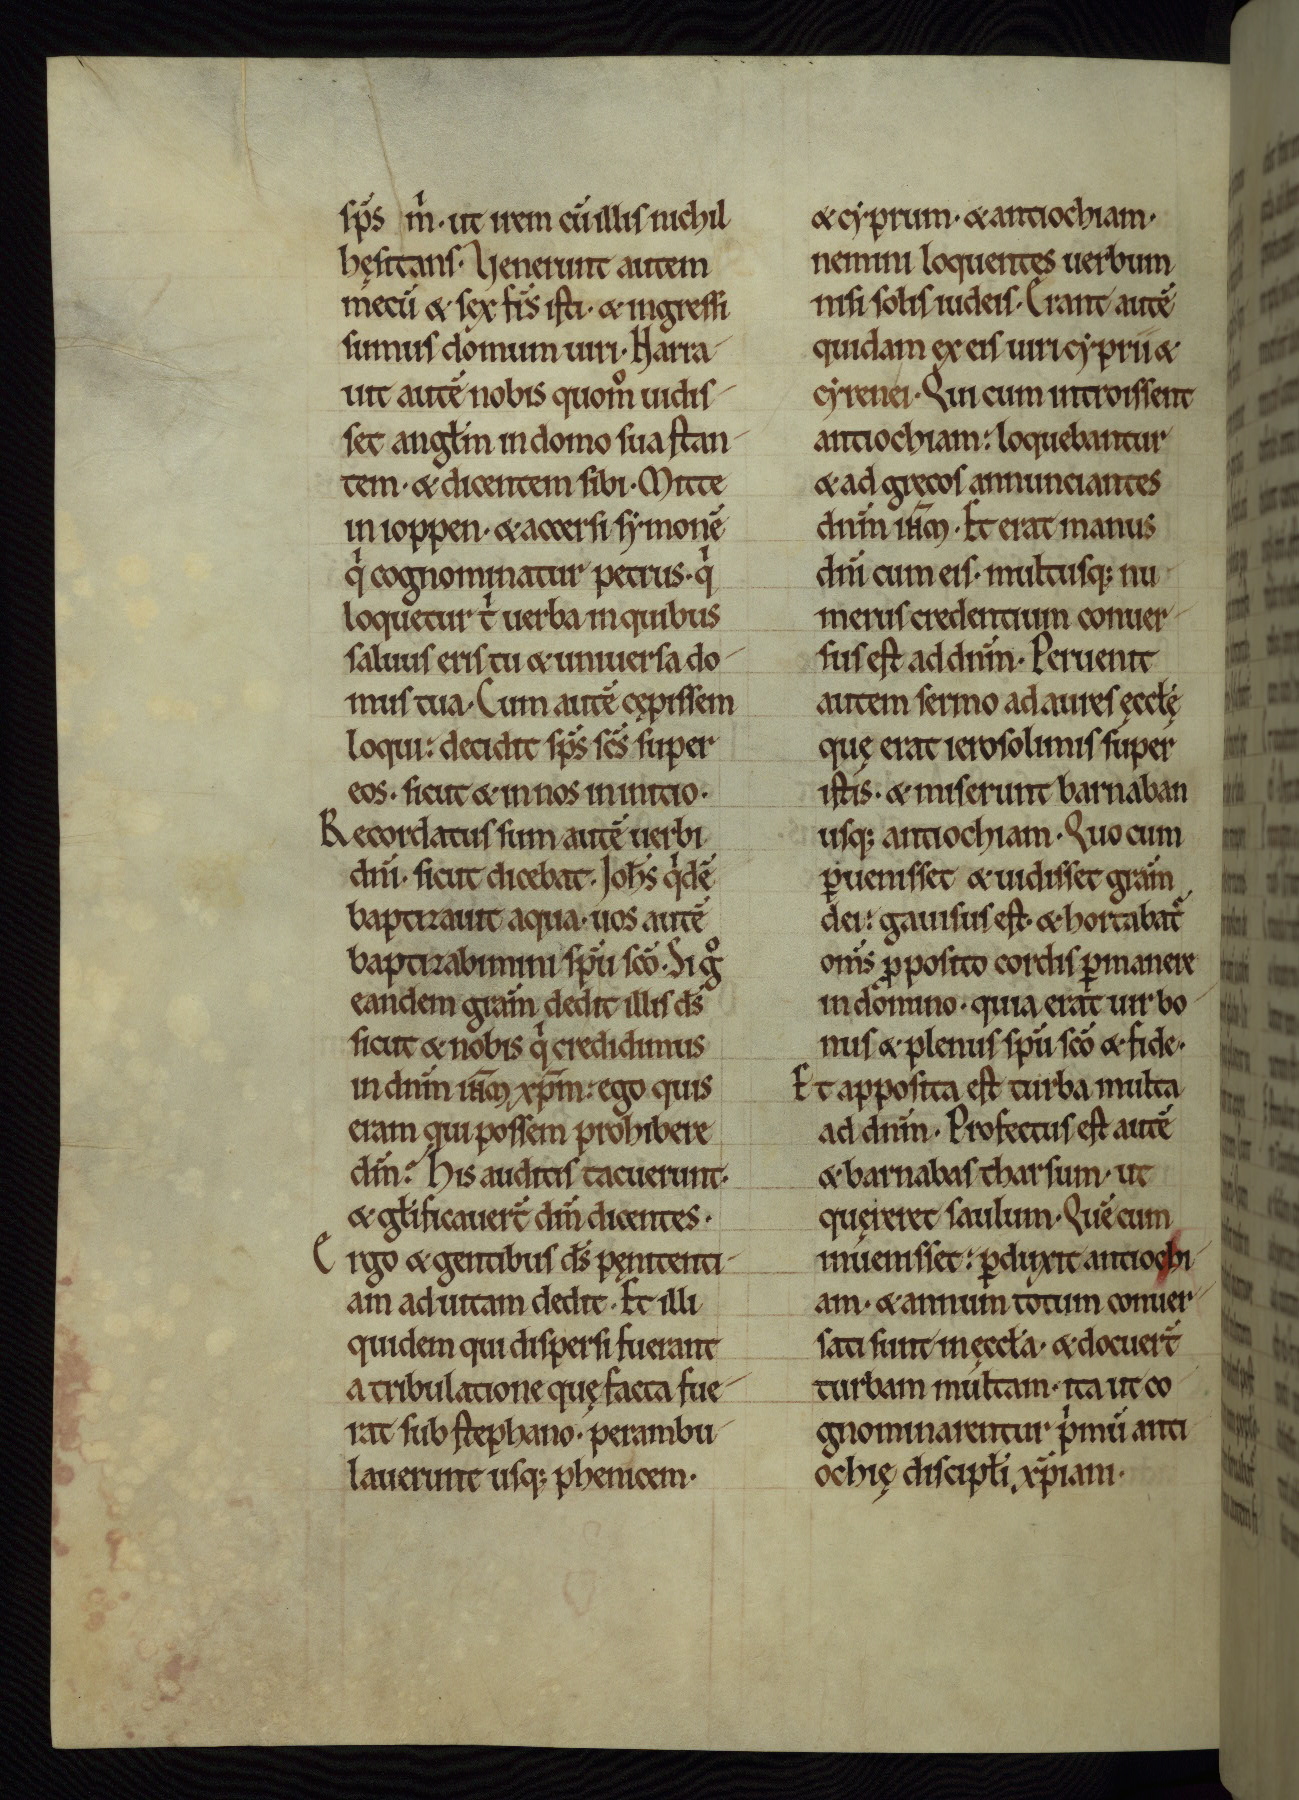 sp̄s m̊. ut irem cū illis nichil
hęsitans. Venerunt autem
mecū & sex fr̄s isti. & ingressi
sumus domum uiri. Narra
uit autē nobis quom̊ uidis
set angłm in domo sua stan
tem. & dicentem sibi. Mitte
in ioppen. & accersi sẏmonē
q̇ cognominatur petrus. q̇
loquetur t̊ uerba in quibus
saluus eris tu & uniuersa do
mus tua. Cum autē cępissem
loqui: decidit sp̄s sc̄s super
eos. sicut & in nos in initio.
Recordatus sum autē uerbi
dn̄i. sicut dicebat. Joħs q̇dē
baptizauit aqua. uos autē
baptizabimini spū scō. Si g̊
eandem grām dedit illis ds̄
sicut & nobis q̇ credidimus
in dnm̄ ihm̄ xpm̄: ego quis
eram qui possem prohibere
dm̄? His auditis tacuerunt.
& głificauer̄t dm̄ dicentes.
Ergo & gentibus ds̄ pęnitenti
am ad uitam dedit. Et illi
quidem qui dispersi fuerant
a tribulatione quę facta fue
rat sub stephano. perambu
lauerunt usq; phenicem.
& cẏprum. & antiochiam.
nemini loquentes uerbum
nisi solis iudeis. Erant autē
quidam ex eis uiri cẏprii &
cẏrenei. Qui cum introissent
antiochiam: loquebantur
& ad gręcos annunciantes
dnm̄ ihm̄. Et erat manus
dn̄i cum eis. multusq; nu
merus credentium conuer
sus est ad dnm̄. Peruenit
autem sermo ad aures ęccłę
quę erat ierosolimis super
istis. & miserunt barnaban
usq; antiochiam. Quo cum
ꝑuenisset & uidisset grām
dei: gauisus est. & hortabat̄
om̄s ꝓposito cordis ꝑmanere
in domino. quia erat uir bo
nus & plenus spū scō & fide.
Et apposita est turba multa
ad dnm̄. Profectus est autē
& barnabas tharsum. ut
quęreret saulum. Quē cum
inuenisset: ꝑduxit antiochi
am. & annum totum conuer
sati sunt in ęccła. & docuer̄t
turbam multam. ita ut co
gnominarentur p̊mū anti
ochię discipłi xp̄iani.